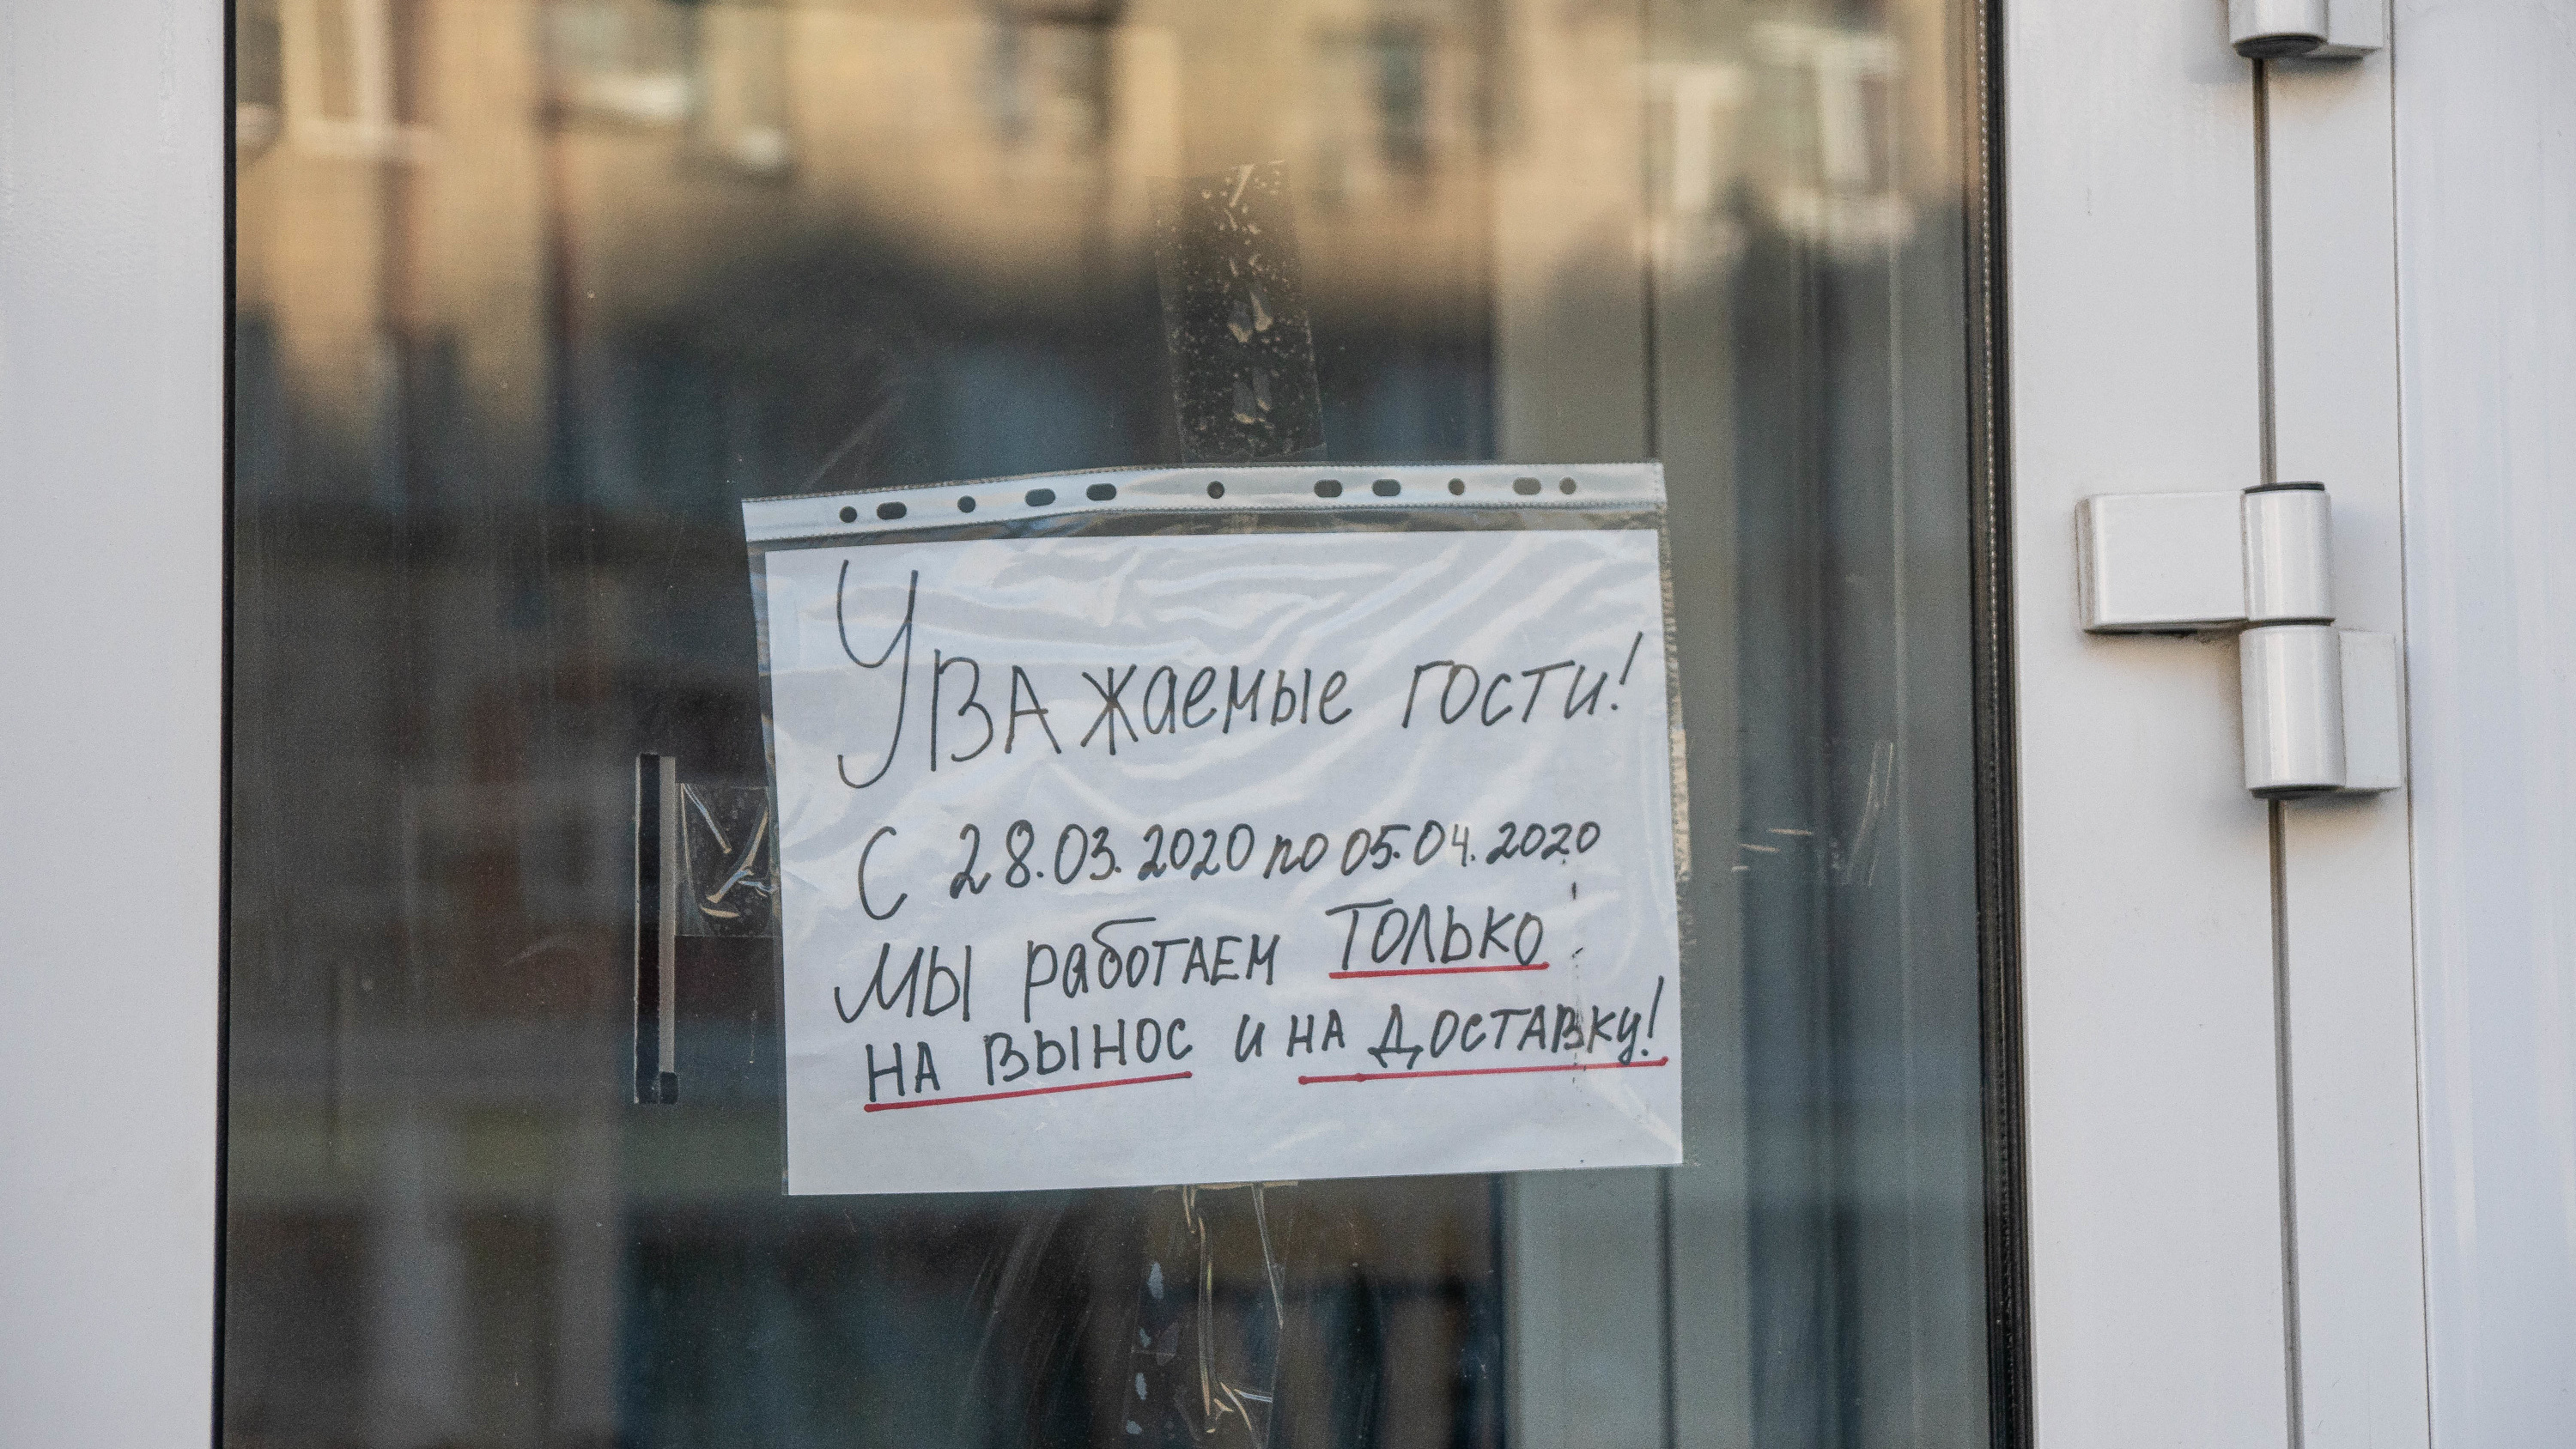 Уважаемые гости!
С 28.03.2020 по 05.04.2020
мы работаем только
на вынос и на доставку!